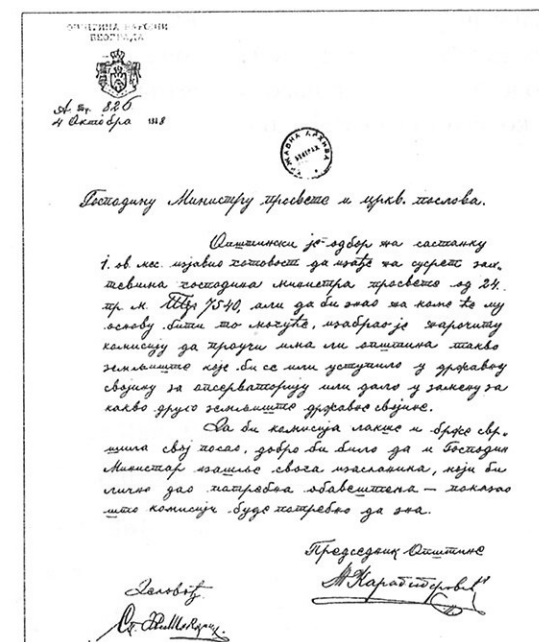 ОПШТИНА ВАРОШИ
БЕОГРАДА
А. Бр. 826
4 Октобра 18
ДРЖАВНА АРХИВА
БЕОГРАД
Господину Министру просвете и цркв. послова.
Општински је одбор на састанку
1. ов. мес. изјавио готовост да изађе на сусрет зах-
тевима господина министра просвете од 24.
пр. м. 7540, али да би знао на коме ће му
основу бити то могуће, изабрао је нарочиту
комисију да проучи има ли општина такво
земљиште које би се или уступило у државну
својину за опсерваторију или дало у замену за
какво друго земљиште државне својине.
Да би комисија лакше и брже свр-
шила свој посао, добро би било да и Господин
Министар изашље свога изасланика, који би
лично дао потребна обавештења — показао
што комисији буде потребно да зна.
Председник Општине
М. Карабиберовић
Деловођ.